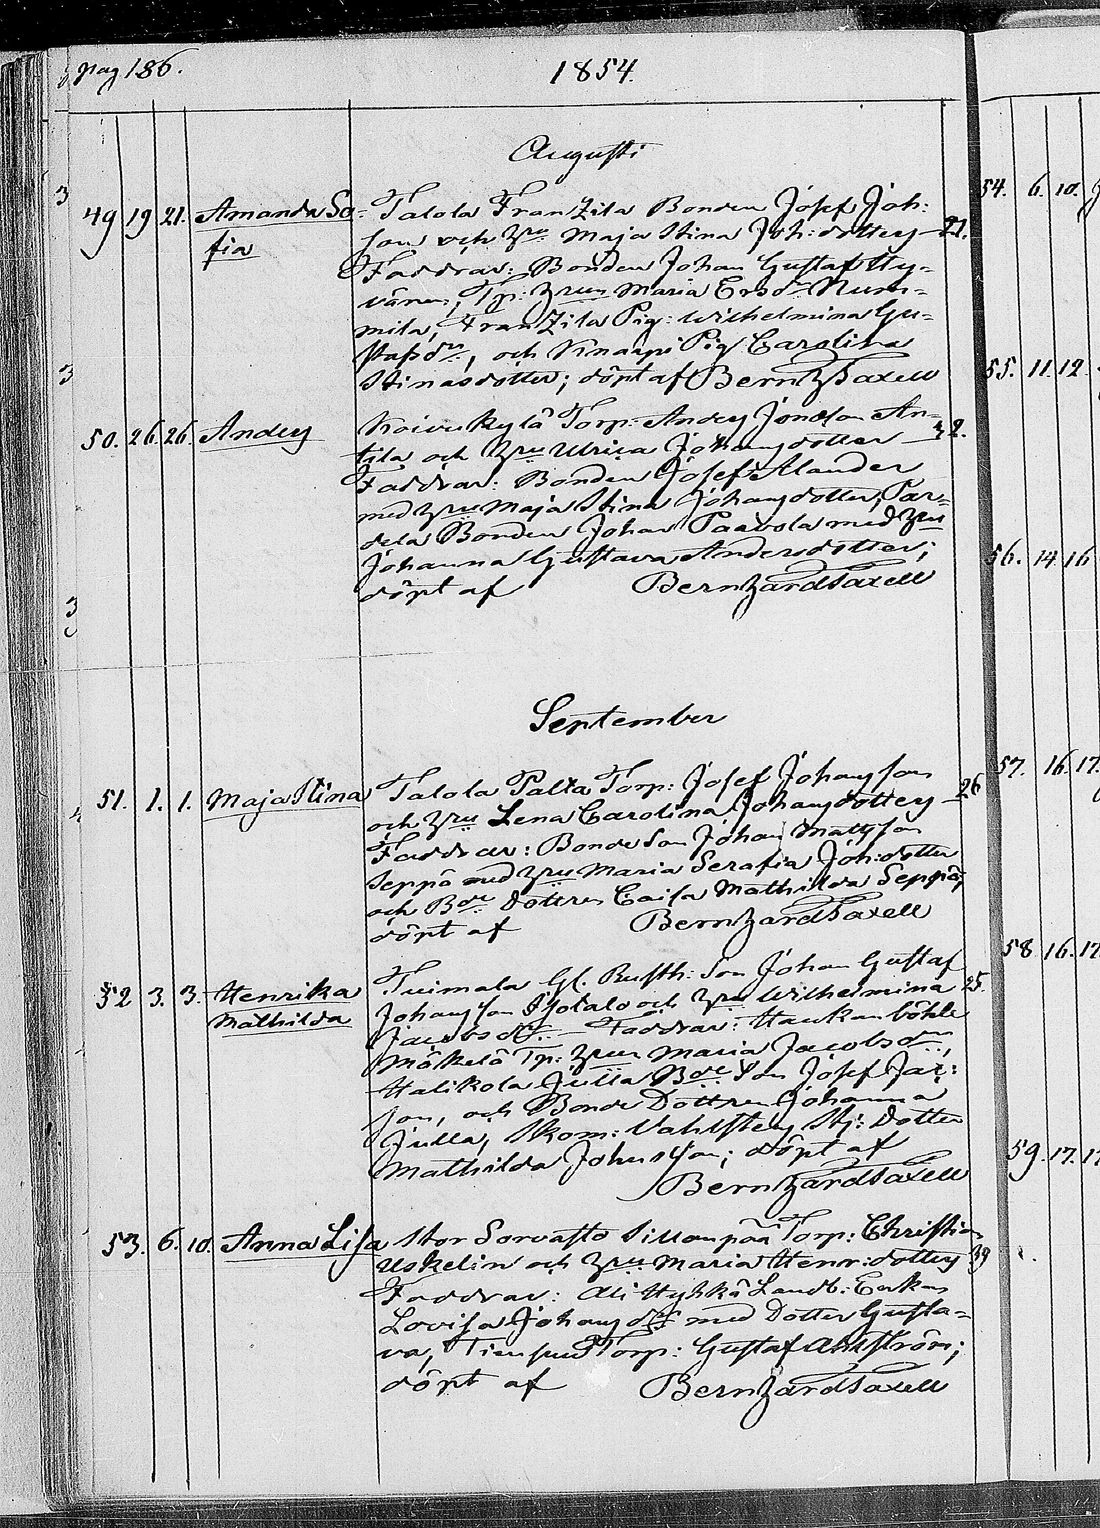 pag 186.
1854.
Augusti
49 19 21. Amanda So- Talola Franzila Bonden Josef Joh:
fia son och hru Maja Stina Joh:dotter 21.
Faddrar: Bonden Johan Gustaf Hy-
vänen, Tp: hrun Maria Ersdr Num-
mila, Franzila Pig: Wilhelmina Gu-
stafsdr, och Pig Carolina
Stinasdotter; döpt af Bernh Saxell
50. 26. 26. Anders Koivukylä Torp: Anders Jonasson An-
tila och hru Ulrica Johansdotter 42.
Faddrar: Bonden Josef Alander
med hru Maja Stina Johansdotter, Pär-
delä Bonden Johan Paavola med hru
Johanna Gustava Andersdotter;
döpt af Bernhard Saxell
September
51. 1. 1. Maja Stina Talola Palta Torp: Josef Johansson
och hru Lena Carolina Johansdotter 26
Faddrar: Bonde Son Johan Mattsson
Seppä med hru Maria Serafia Joh:dotter
och Bde Dottren Caisa Mathilda Seppä;
döpt af Bernhard Saxell
52 3. 3. Henrika Tuimala Gl. Rusth: Son Johan Gustaf
Mathilda Johansson och hru Wilhelmina 25
Jacobsdr. Faddrar: Haukanböhle
Mäkelä Tp: hrun Maria Jacobsdr,
Halikola Julla Bde Son Josef Jac:
son, och Bonde Dottren Johanna
Julla, Skom: Vahlsten Stj: Dotter
Mathilda Johnsson; döpt af
Bernhard Saxell
53. 6. 10. Anna Lisa Stor Sorvasto Sillanpää Torp: Christian
Uskelin och hru Maria Henr:dotter 39
Faddrar: Ali Hyhkä Landb: Enkan
Lovisa Johansdr med Dotter Gusta-
va, Torp: Gustaf Ahlström;
döpt af Bernhard Saxell
54. 6. 10.
55. 11. 12.
56. 14. 16
57. 16. 17.
58. 16. 17.
59. 17. 17